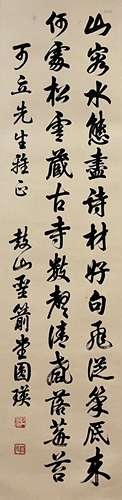 山容水態盡詩材好句飛從筆底來
何處松雲藏古寺數聲清磬落莓苔
可立先生雅正 鼓山聖箭堂圓瑛